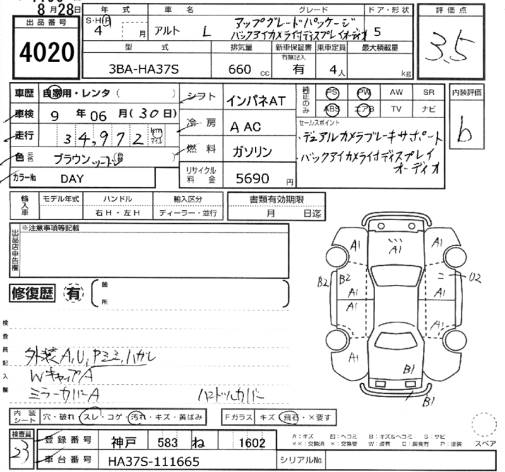 8月28日
出品番号 4020
年式 S・H・R 4年 月
車名 アルト L
グレード アップグレードパッケージ
バックアイカメラ付ディスプレイオーディオ
ドア・形状 5
評価点 3.5
型式 3BA-HA37S
排気量 660 cc
新車保証書 有無記入 有
乗車定員 4人
最大積載量 kg
車歴 自家用・レンタ( )
車検 9年06月(30日)
走行 34,972 km
色 ブラウンツートン
カラー№ DAY
シフト インパネAT
冷房 A AC
燃料 ガソリン
リサイクル料金 5690円
純正のみ PS PW AW SR
ABS エアB TV ナビ
内装評価 b
セールスポイント
・デュアルカメラブレーキサポート
・バックアイカメラ付ディスプレイオーディオ
輸入車 モデル年式 ハンドル 右H・左H 輸入区分 ディーラー・並行
書類有効期限 月 日迄
出品店申告欄
※注意事項等記載
修復歴 有 箇所
検査員記入欄
外装A,U,Pミミ,ハガレ
WキャップA
ミラーカバーA
ハンドルカバー
A1 A1 A1
B2 B2 A1 A1 U2
A1 A1
A1 A1
B1
B1
内装シート 穴・破れ・スレ・コゲ・汚れ・キズ・黄ばみ
Fガラス キズ・飛石・X要す
検査員 23
登録番号 神戸 583 ね 1602
車台番号 HA37S-111665
シリアルNo
A:キズ U:ヘコミ B:キズ&ヘコミ S:サビ
スペア